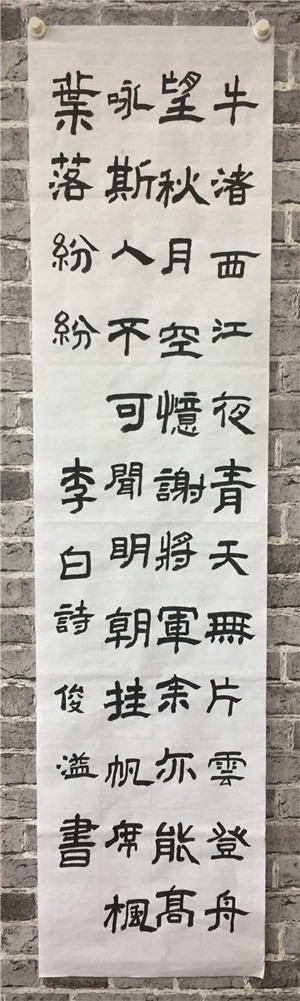 牛渚西江夜青天無片雲登舟
望秋月空憶謝將軍余亦能高
咏斯人不可聞明朝挂帆席楓
葉落紛紛 李白詩 俊溢書